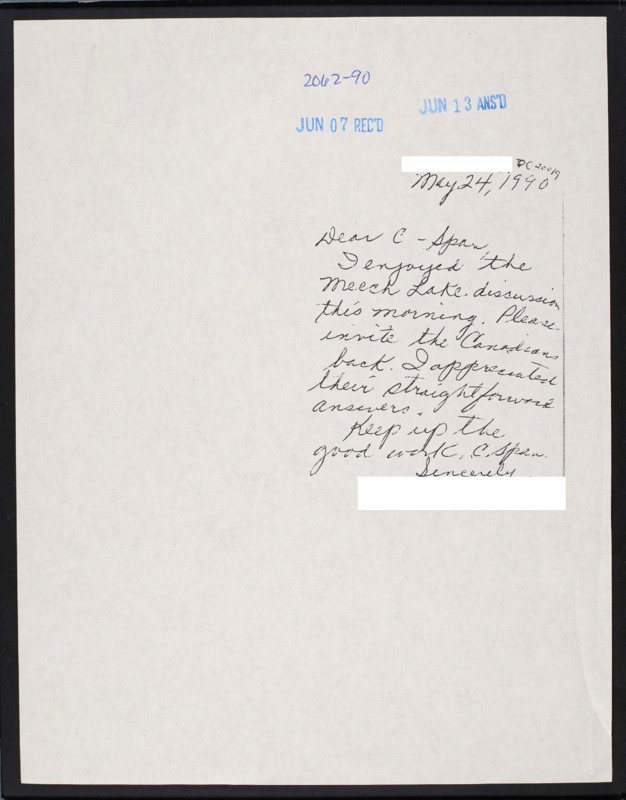 2062-90
JUN 13 ANS'D
JUN 07 REC'D
DC 20019
May 24, 1990
Dear C-Span,
I enjoyed the
Meech Lake discussion
this morning. Please
invite the Canadians
back. I appreciated
their straightforward
answers.
Keep up the
good work, C.Span.
Sincerely